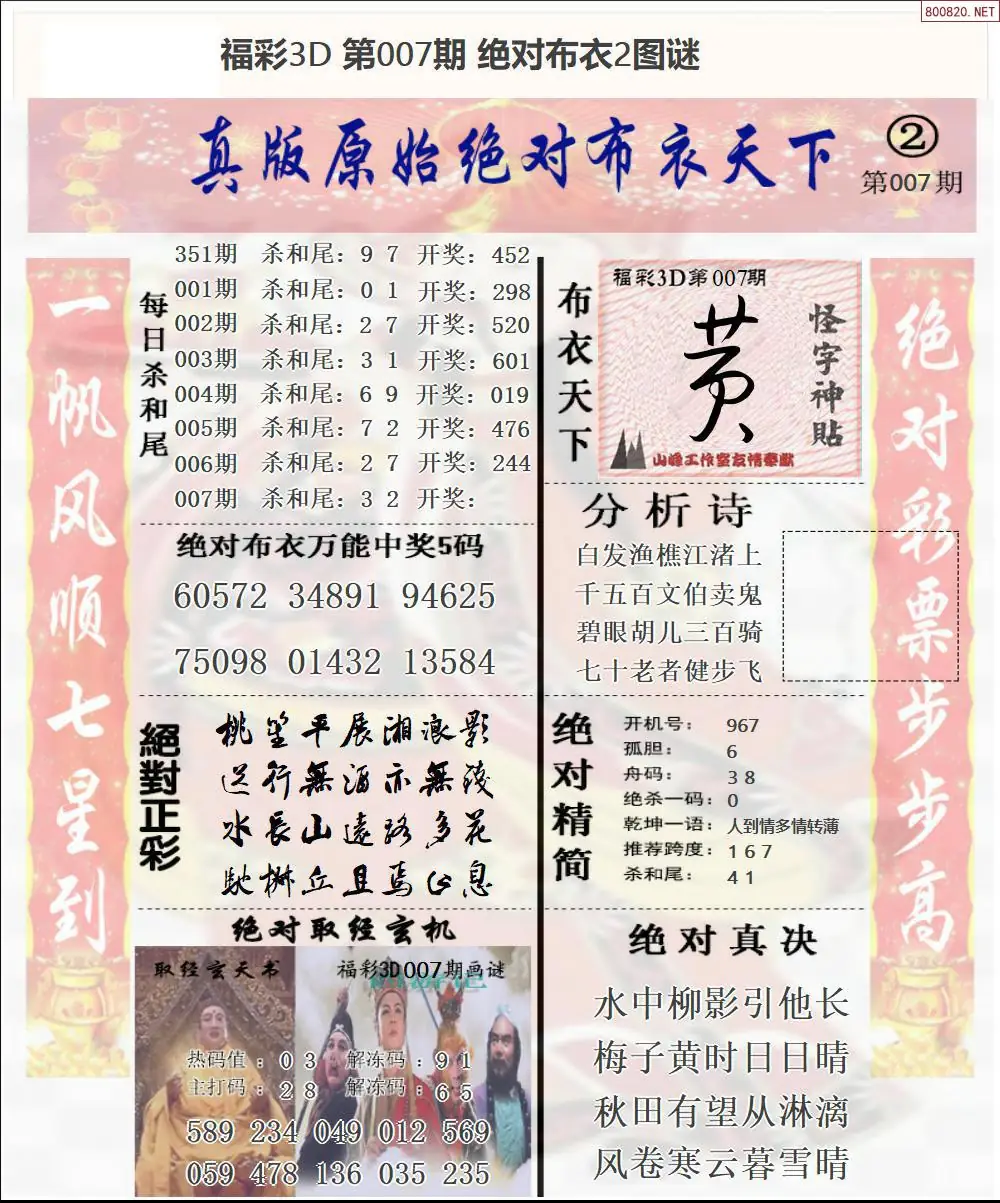 800820.NET
福彩3D 第007期 绝对布衣2图谜
真版原始绝对布衣天下
②
第007期
一帆风顺七星到
每日杀和尾
351期 杀和尾: 9 7 开奖: 452
001期 杀和尾: 0 1 开奖: 298
002期 杀和尾: 2 7 开奖: 520
003期 杀和尾: 3 1 开奖: 601
004期 杀和尾: 6 9 开奖: 019
005期 杀和尾: 7 2 开奖: 476
006期 杀和尾: 2 7 开奖: 244
007期 杀和尾: 3 2 开奖:
绝对布衣万能中奖5码
60572 34891 94625
75098 01432 13584
絕對正彩
桃笙平展湘浪影
送行無酒亦無
水長山遠路多花
丘且焉息
绝对取经玄机
取经玄天书
福彩3D007期画谜
热码值: 0 3 解冻码: 9 1
主打码: 2 8 解冻码: 6 5
589 234 049 012 569
059 478 136 035 235
布衣天下
福彩3D第007期
黄
怪字神貼
山峰工作室友情奉献
分析诗
白发渔樵江渚上
千五百文伯卖鬼
碧眼胡儿三百骑
七十老者健步飞
绝对精简
开机号: 967
孤胆: 6
舟码: 3 8
绝杀一码: 0
乾坤一语: 人到情多情转薄
推荐跨度: 1 6 7
杀和尾: 4 1
绝对真决
水中柳影引他长
梅子黄时日日晴
秋田有望从淋漓
风卷寒云暮雪晴
绝对彩票步步高